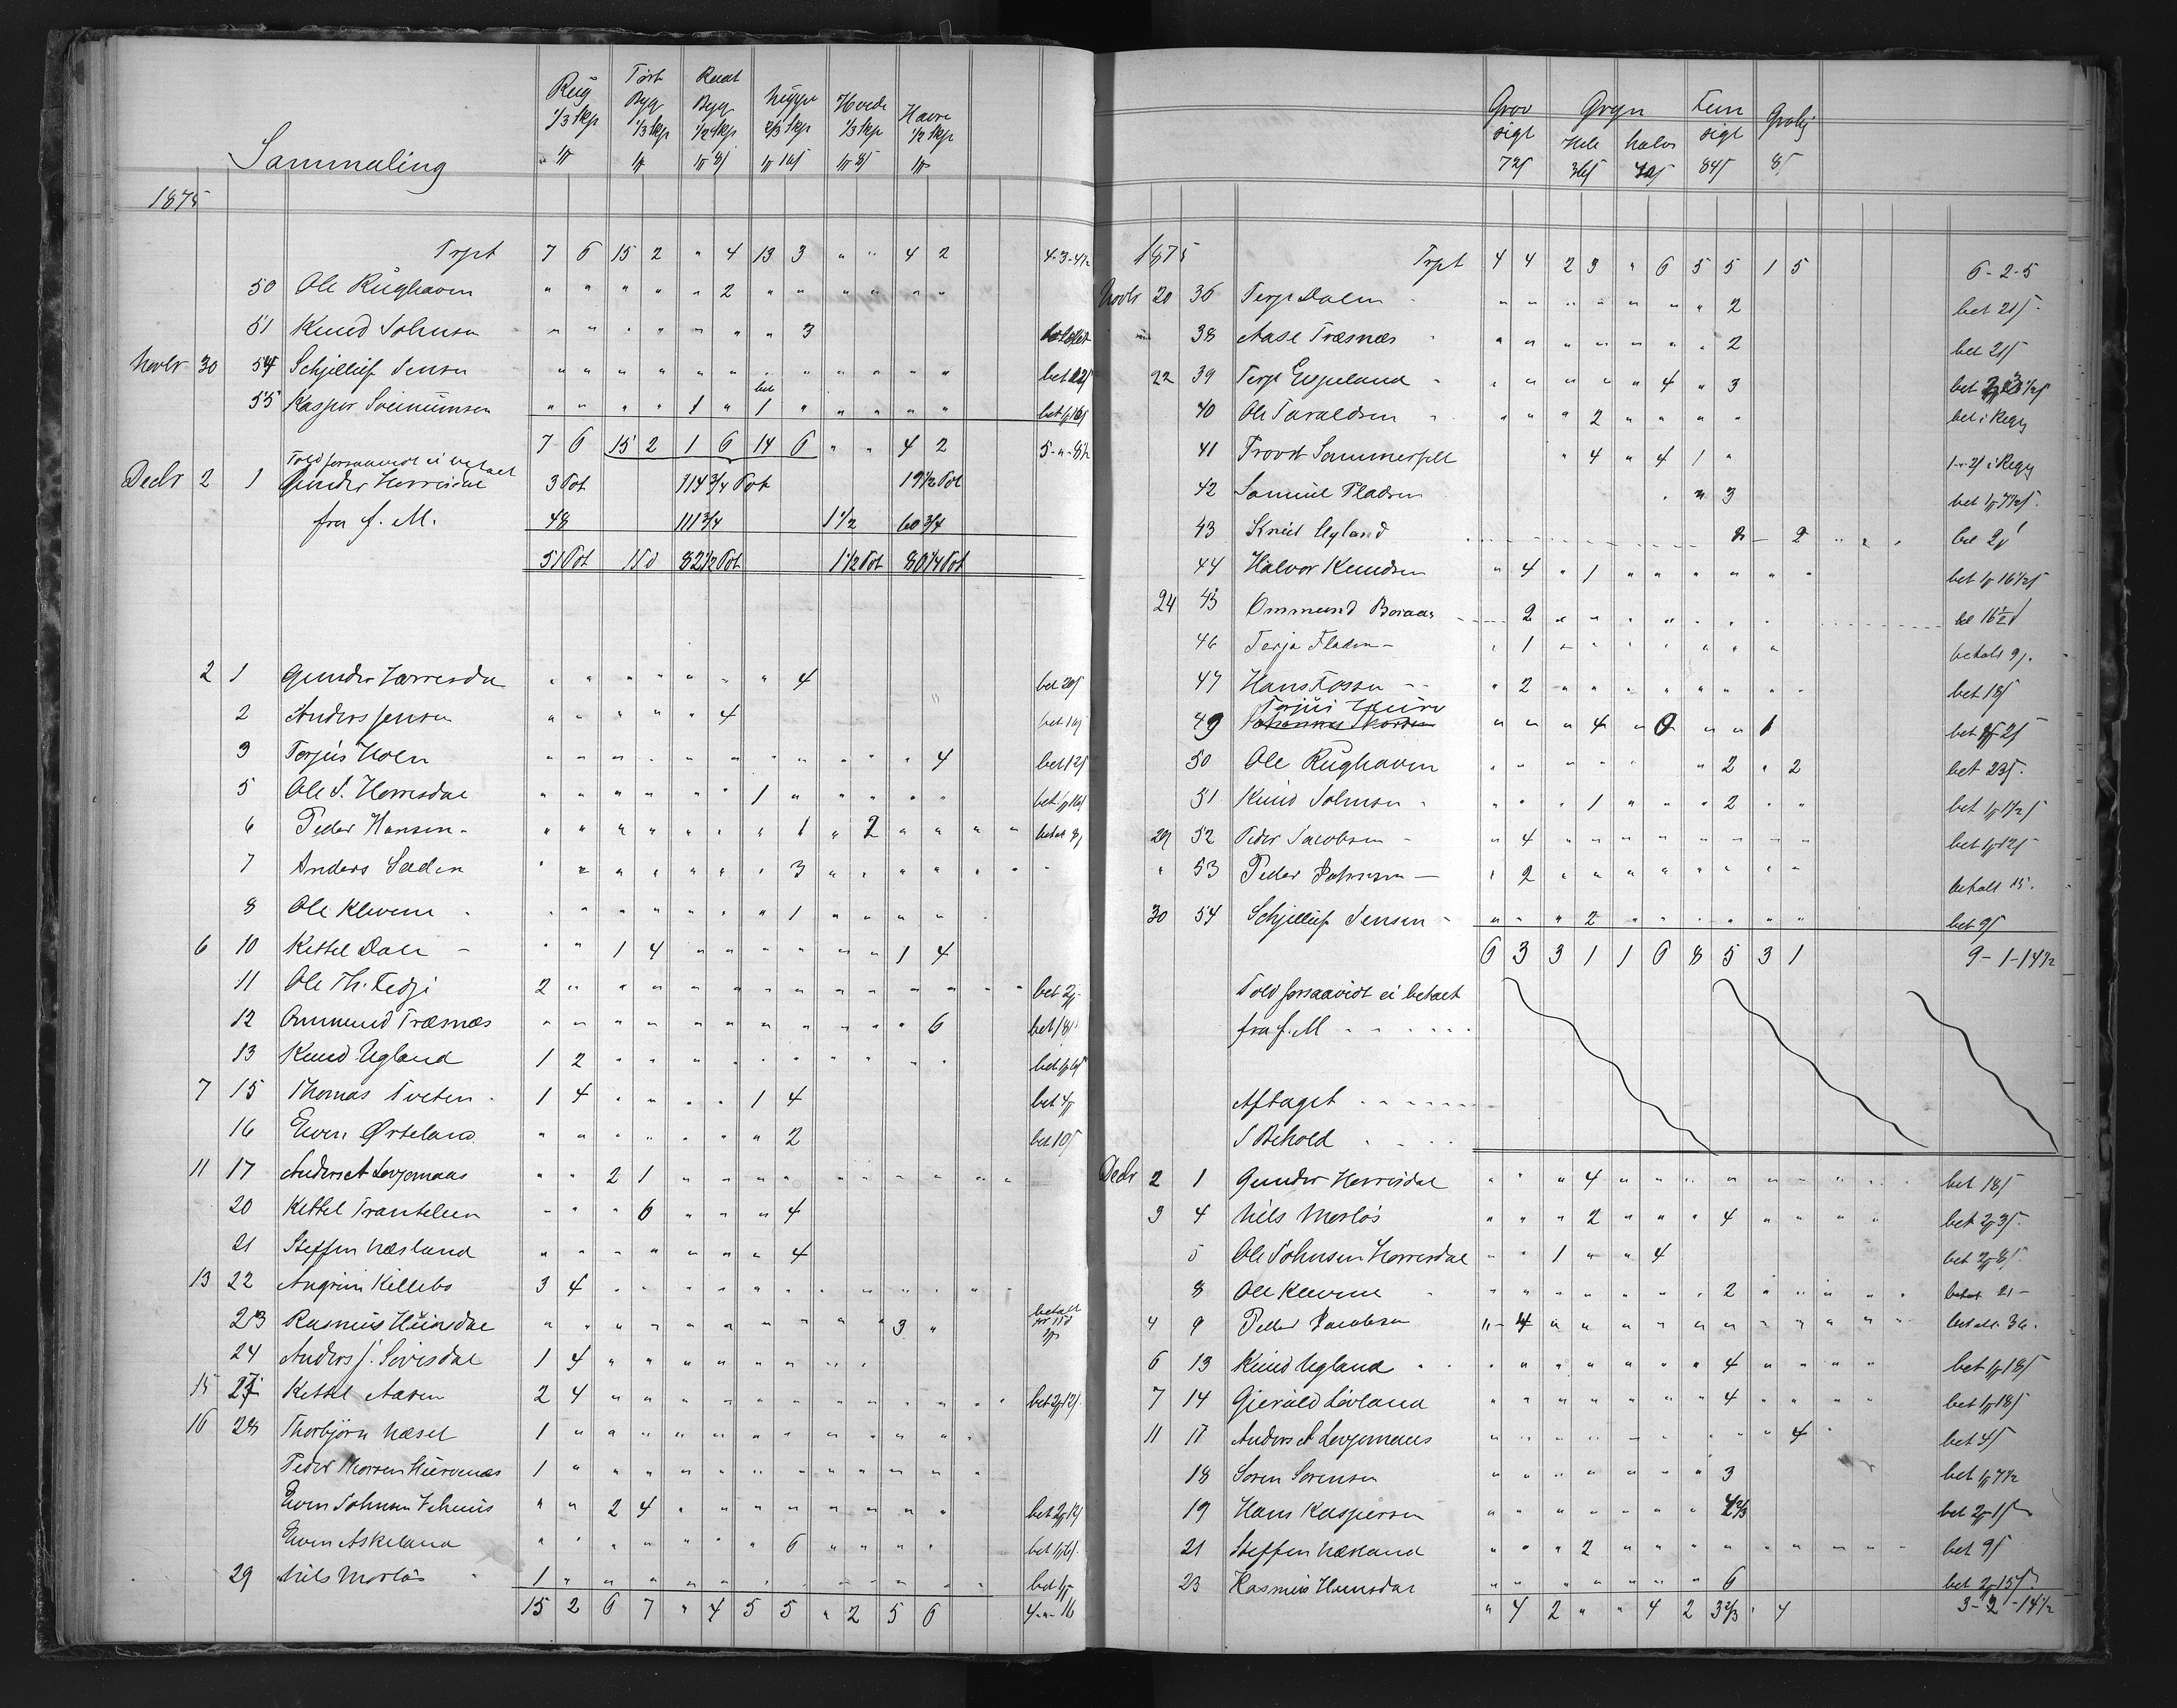 Sammaling
Rug Tørt Byg Raat Byg Hvede Havre
1/3 skp 1/3 skp 1/2 skp 2/3 skp 1/3 skp 1/2 skp
1875
Trpt 7 6 15 2 " 4 13 3 " " 4 2 4-3-4 1/2
50 Ole Rughaven " " " " " 2 " " " " " "
51 Knud Johnsen " " " " " " " 3
Novbr 30 54 Schjellief Jensen " " " " " " " " " " " bet 12
55 Kasper Soeinumsen " " " " 1 " 1 " " " " " bet
7 6 15 2 1 6 14 6 " " 4 2 5-"-8 1/2
Told forsaavidt ei betalt
Decbr 2 1 Gunder Herrisdal 3 Pot 114 3/4 Pot 19 1/2 Pot
fra f. M. 48 111 3/4 1 1/2 60 3/4
51 Pot 82 1/2 Pot 1 1/2 Pot 80 1/4 Pot
2 1 Gunder Herresdal " " " " " " " 4 bet 20
2 Anders Jensen " " " " " 4 bet
3 Torjus Holen " " " " " " " " " " " 4 bet 12
5 Ole S. Herresdal " " " " " " 1 " " " " " bet
6 Peder Hansen " " " " " " " 1 " 2 " " " " betalt
7 Anders Saden " " " " " " " 3 " " " " " "
8 Ole Klevene " " " " " " " 1 " " " "
6 10 Kettel Dale " " 1 4 " " " " " " 1 4
11 Ole Th. Fedje 2 " " " " " " " " " " " " " bet 2
12 Ommund Træsnæs " " " " " " " " " " " 6 bet 18
13 Knud Ugland 1 2 " " " " " " " " " " bet
7 15 Thomas Tveten 1 4 " " " " 1 4 bet 4
16 Even Ørteland " " " " " " " 2 bet 10
11 17 Anders A Lovjomaas " " 2 1 " " " " " " " " " "
20 Kettel Tranteleen " " " 6 " " " 4
21 Steffen Næsland " " " " " " " 4
13 22 Angrim Killebo 3 4 " " " " " " " " " " " "
23 Rasmus Hünsdal " " " " " " " " " " 3 " betalt
24 Anders J. Sevisdal 1 4 " " " " " " " "
15 27 Kettel Aasen 2 4 " " " " " " " " " " " " bet 2 12
16 28 Thorbjørn Næset 1 " " " " " " " " " " " "
Peder Thorsen Hüvenæs 1 " " " " " " " " " " " "
Even Johnsen " " 2 4 " " " " " " " " bet 2
Even Askeland " " " " " " " 6 " " " " bet
29 Nils Morløs 1 " " " " " " " " " " " " bet
15 2 6 7 " 4 5 5 " 2 5 6 4-"-16
Grov sigt Gryn Fiin sigt
Hele halve
72 36 84 8
1875 Trpt 4 4 2 3 " 6 5 5 1 5 6-2-5
Novbr 20 36 Terje Dalen " " " " " " " 2 bet 21
38 Aase Træsnæs " " " " " " " 2 bet 21
22 39 Terje Espeland " " " " " 4 " 3 bet
40 Ole Taraldsen " " " 2 " " " " bet i Regg
41 Provst Sommerfelt " 4 " 4 1 " i Regg
42 Samuel Fladen " " 3 bet
43 Knud Ugland 2 bet 2
44 Halvor Knudsen " 4 " 1 " " " " " " bet 1 16 1/2
24 45 Ommund Boraas 2 " " " " " " bet 16 1/2
46 Terje Fladen - " 1 " " " " " " " betalt 9
47 Hans Fosse " 2 " " " " " " " " bet 18
Torjus
49 Johannes " " " 4 " 0 " " 1 bet 2
50 Ole Rughaven " " " " " " 2 " 2 bet 23
51 Knud Johnsen " " " 1 " " " 2 " " bet
29 52 Peder Jacobsen " 4 " " " " " " " " bet 1 12
" 53 Peder Johnsen - " 2 " " " " " " " " betalt 15
30 54 Schjellief Jensen " " " 2 " " " " " " bet 9
6 3 3 1 1 6 8 5 3 1 9-1-14 1/2
Told forsaavidt ei betalt
fra f. M
Aftaget
I Behold
Decbr 2 1 Gunder Herrisdal " " " 4 " " " " " " " " " bet 18
3 4 Nils Morløs " " " 2 " " " 4 " " " " bet 2 3
5 Ole Johnsen Herresdal " " 1 " " 4 bet 2 8
8 Ole Klevene " " " " " " " 2 " " " " betalt 21
4 9 Peder Jacobsen " 4 " " " " " " " " " " betalt 36
6 13 Knud Ugland " " " " " " " 4 " " " " bet 1 18
7 14 Gjeruld Løvland " " " " " " " 4 " " " " bet 1 18
11 17 Anders A Lovjomaas " " " " " " " " " 4 bet 4
18 Soren Sorensen " " " " " " " 3 bet 1 7 1/2
19 Hans Kaspersen " " " " " " " 4 2/3 bet 2
21 Steffen Næsland " " " 2 " " " " " " " " " bet 9
23 Rasmus Hunsdal " " " " " " " 6 bet 2 15
" 4 2 " " 4 2 3 2/3 " 4 3-2-14 1/2